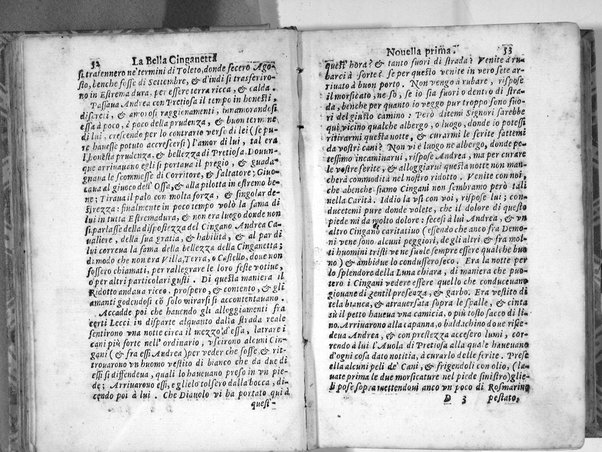 52 La Bella Cinganetta
si trattennero ne' termini di Toleto, donde fecero Ago-
sto, benche fosse di Settembre, & d'indi si trasferiro-
no in Estremadura, per essere terra ricca, & calda.
Passaua Andrea con Pretiosa il tempo in honesti,
discreti, & amorosi raggionamenti, innamorandosi
essa à poco, à poco della prudenza, & buon termine
di lui, crescendo per lo contrario verso di lei (se pu-
re hauesse potuto accrescersi) l'amor di lui, tal era
l'honestà prudenza, & bellezza di Pretiosa. Douun-
que arriuauano egli si portaua il pregio, & guada-
gnaua le scommesse di Corritore, & saltatore; Giuo-
caua al giuoco dell'Ossa, & alla pilotta in estremo be-
ne; Tiraua il palo con molta forza, & singolar de-
strezza: finalmente in poco tempo volò la fama di
lui in tutta Estremadura, & non era luogo doue non
si parlasse della dispositezza del Cingano Andrea Ca-
ualiere, della sua gratia, & habilità, & al par di
lui correua la fama della bellezza della Cinganetta;
di modo che non era Villa, Terra, ò Castello, doue non
fossero chiamati, per rallegrare le lor feste votiue,
ò per altri particolari gusti. Di questa maniera il
Ridotto andaua ricco, prospero, & contento, & gli
amanti godendosi cò solo mirarsi si accontentauano.
Accadde poi che hauendo gli alloggiamenti fra
certi Lecci in disparte alquanto dalla strada reale
sentirono vna notte circa il mezzo d'essa, latrare i
cani più forte nell'ordinario, vscirono alcuni Cin-
gani (& fra essi Andrea) per veder che fosse, & ri-
trouarono vn huomo vestito di bianco che da due di
essi si diffendeua, quali lo haueuano preso in vn pie-
de; Arriuarono essi, e glielo tolsero dalla bocca, di-
cendo poi à lui. Che Diauolo vi ha portato quì à
quest-
Nouella prima. 53
quest' hora? & tanto fuori di strada? Venite à ru-
barci à sorte? se per questo venite in vero sete ar-
riuato à buon porto. Non vengo à rubare, rispose
il morsicato, ne sò, se io sia fuori ò dentro di stra-
da, benche per quanto io veggo pur troppo sono fuo-
ri del giusto camino; Però ditemi Signori sarebbe
quì vicino qualche albergo, ò luogo, donde io potessi
ricourarmi questa notte, & curarmi le ferite fattemi
da vostri cani? Non vi è luogo ne albergo, donde po-
tessimo incaminarui, rispose Andrea, ma per curare
le vostre ferite, & alloggiarui questa notte non man-
cherà commodità nel nostro ridotto. Venite con noi,
che abenche siamo Cingani non sembramo però tali
nella Carità. Iddio la vsi con voi, rispose lui; con-
ducetemi pure donde volete, che il dolore di questo
piede mi dà molto dolore; fecesi à lui Andrea, & vn
altro Cingano caritatiuo (essendo che anco fra Demo-
ni vene sono alcuni peggiori, degli altri & fra mol-
ti huomini tristi vene suole sempre essere qualche buo-
no) & ambidue lo condussero seco. Era la notte per
lo splendore della Luna chiara, di maniera che puo-
tero i Cingani vedere essere quello che conduceuano
giouane di gentil presenza, & garbo. Era vestito di
tela bianca, & attrauersata sopra le spalle, & cinta
sù il petto haueua vna camicia, ò più tosto sacco di li-
no. Arriuarono alla capanna, ò baldachino doue rise-
deua Andrea, & con prestezza accesero lumi, cor-
rendo à lui l'Auola di Pretiosa alla quale haueuano
d'ogni cosa dato notitia, à curarlo delle ferite. Prese
ella alcuni peli de' Cani, & frigendoli con olio, (la-
uate prima le due morsicature nel piede sinistro) glie-
li pose sopra mettendoui anco vn poco di Rosmarino
D 3 pestato,